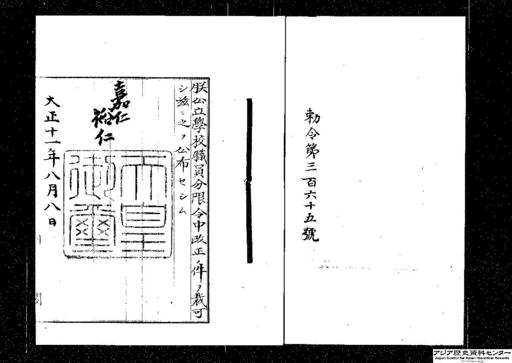 勅令第三百六十五號
朕公立學校職員分限令中改正ノ件ヲ裁可
シ茲ニ之ヲ公布セシム
嘉仁
裕仁
天皇
御璽
大正十一年八月八日
アジア歴史資料センター
Japan Center for Asian Historical Records